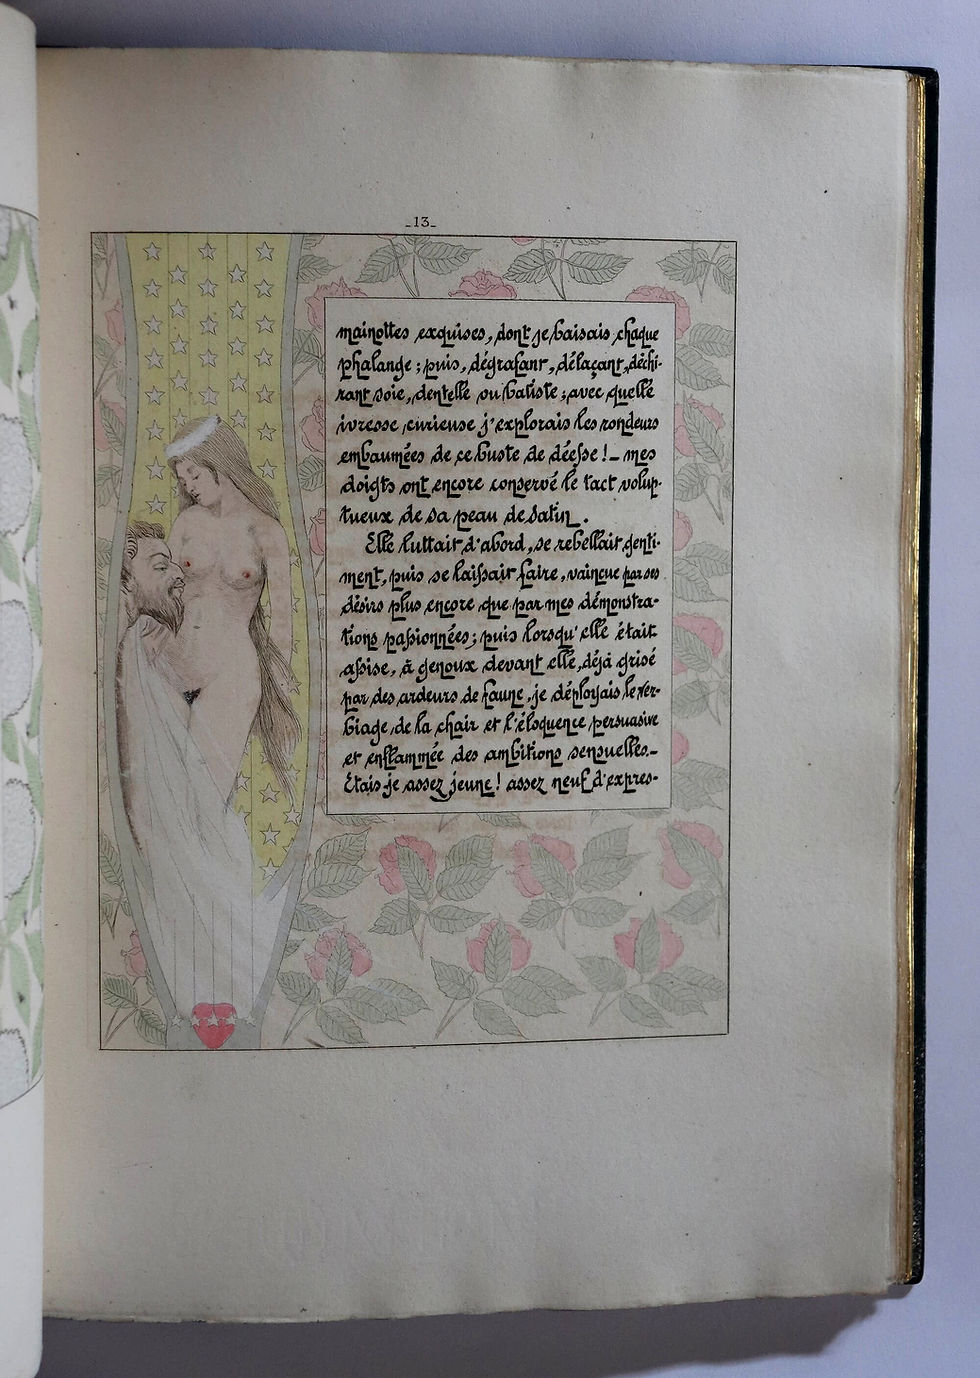 _13_
mainottes exquises, dont je baisais chaque
phalange ; puis, dégrafant, délaçant, déchi-
rant soie, dentelle ou batiste ; avec quelle
ivresse curieuse j'explorais les rondeurs
embaumées de ce buste de déesse ! _ mes
doigts ont encore conservé le tact volup-
tueux de sa peau de satin.
Elle luttait d'abord, se rebellait genti-
ment, puis se laissait faire, vaincue par ses
désirs plus encore que par mes démonstra-
tions passionnées ; puis lorsqu'elle était
assise, à genoux devant elle, déjà grisé
par des ardeurs de faune, je déployais le ver-
biage de la chair et l'éloquence persuasive
et enflammée des ambitions sensuelles. _
Etais-je assez jeune ! assez neuf d'expres-